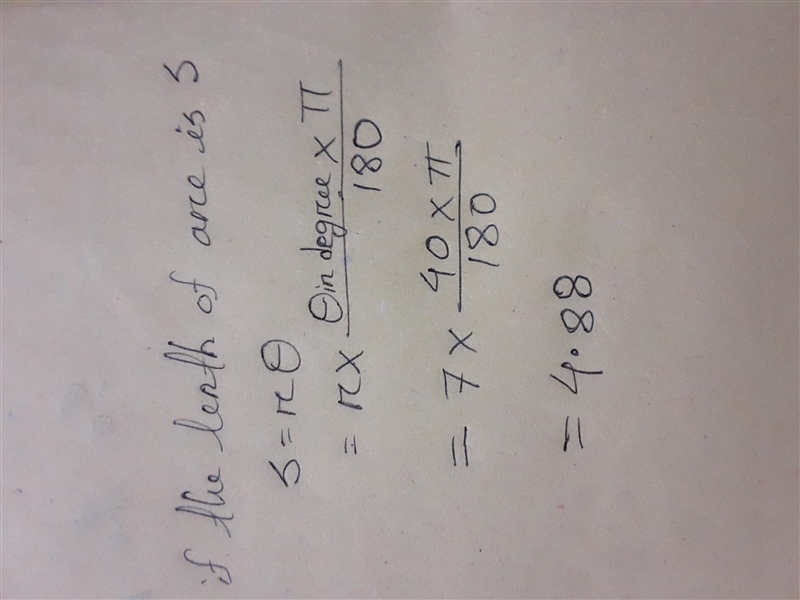 if the lenth of arc is S
S = rθ
= r x θ in degree x π / 180
= 7 x 40 x π / 180
= 4.88